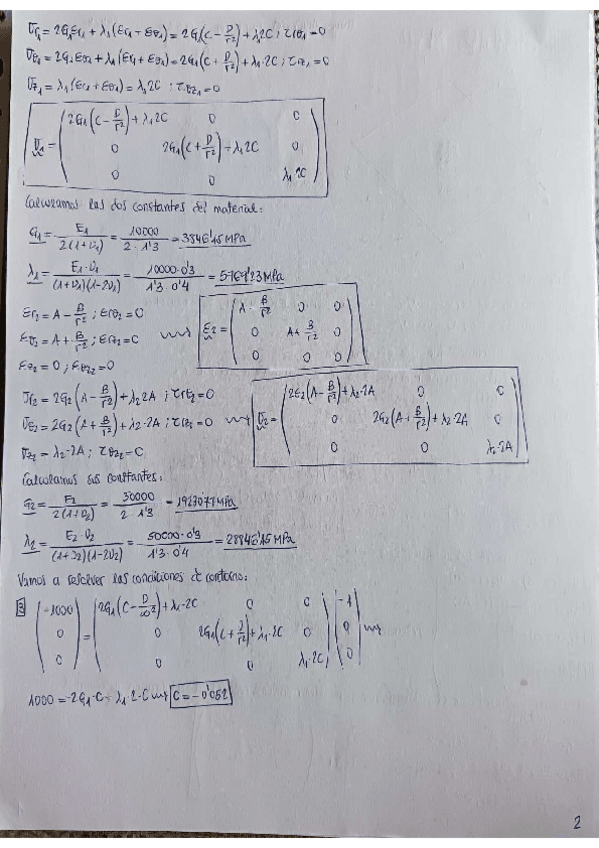 σr₁ = 2G₁εr₁ + λ₁(εr₁ + εθ₁) = 2G₁(C - D/r²) + λ₁2C ; τrθ₁ = 0
σθ₁ = 2G₁εθ₁ + λ₁(εr₁ + εθ₁) = 2G₁(C + D/r²) + λ₁·2C ; τrz₁ = 0
σz₁ = λ₁(εr₁ + εθ₁) = λ₁2C ; τθz₁ = 0
σ₁ = ( 2G₁(C - D/r²) + λ₁2C 0 0
0 2G₁(C + D/r²) + λ₁2C 0
0 0 λ₁2C )
Calculamos las dos constantes del material:
G₁ = E₁ / 2(1+υ₁) = 10000 / 2·1'3 = 3846'15 MPa
λ₁ = E₁·υ₁ / (1+υ₁)(1-2υ₁) = 10000·0'3 / 1'3·0'4 = 5769'23 MPa
εr₂ = A - B/r² ; εrθ₂ = 0
εθ₂ = A + B/r² ; εrz₂ = 0
εz₂ = 0 ; εθz₂ = 0
ε₂ = ( A - B/r² 0 0
0 A + B/r² 0
0 0 0 )
σr₂ = 2G₂(A - B/r²) + λ₂2A ; τrθ₂ = 0
σθ₂ = 2G₂(A + B/r²) + λ₂·2A ; τrz₂ = 0
σz₂ = λ₂·2A ; τθz₂ = 0
σ₂ = ( 2G₂(A - B/r²) + λ₂·2A 0 0
0 2G₂(A + B/r²) + λ₂·2A 0
0 0 λ₂·2A )
Calculamos sus constantes:
G₂ = E₂ / 2(1+υ₂) = 50000 / 2·1'3 = 19230'77 MPa
λ₂ = E₂·υ₂ / (1+υ₂)(1-2υ₂) = 50000·0'3 / 1'3·0'4 = 28846'15 MPa
Vamos a resolver las condiciones de contorno:
3 ( -1000 0 0 ) = ( 2G₁(C - D/∞²) + λ₁·2C 0 0
0 2G₁(C + D/r²) + λ₁·2C 0
0 0 λ₁·2C ) ( -1 0 0 )
1000 = -2G₁·C - λ₁·2·C C = -0'052
2